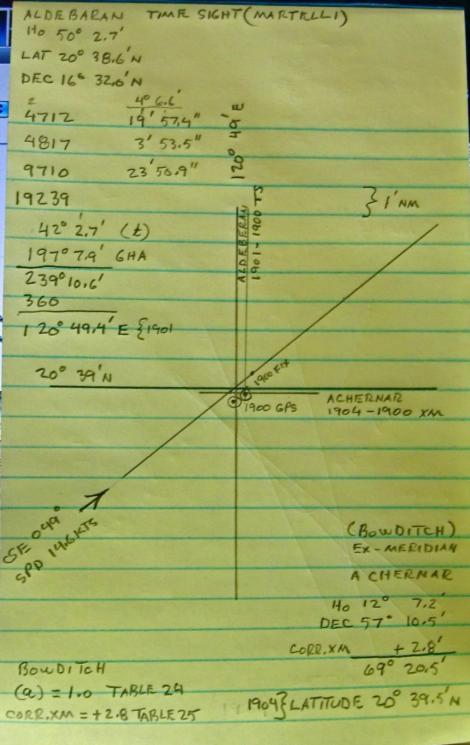 ALDEBARAN TIME SIGHT (MARTELLI)
Ho 50° 2.7'
LAT 20° 38.6' N
DEC 16° 32.6' N
4712 4° 6.6'
4817 19' 57.4"
9710 3' 53.5"
19239 23' 50.9"
42° 2.7' (t)
197° 7.9' GHA
239° 10.6'
360
120° 49.4' E {1901
120° 49' E
ALDEBERAN
1901-1900 TS
} 1' NM
20° 39' N
1900 FIX
1900 GPS
ACHERNAR
1904-1900 XM
CSE 049°
SPD 14.6 KTS
(BOWDITCH)
EX-MERIDIAN
ACHERNAR
Ho 12° 7.2'
DEC 57° 10.5'
CORR.XM + 2.8'
69° 20.5'
1904} LATITUDE 20° 39.5' N
BOWDITCH
(a) = 1.0 TABLE 24
CORR.XM = +2.8 TABLE 25